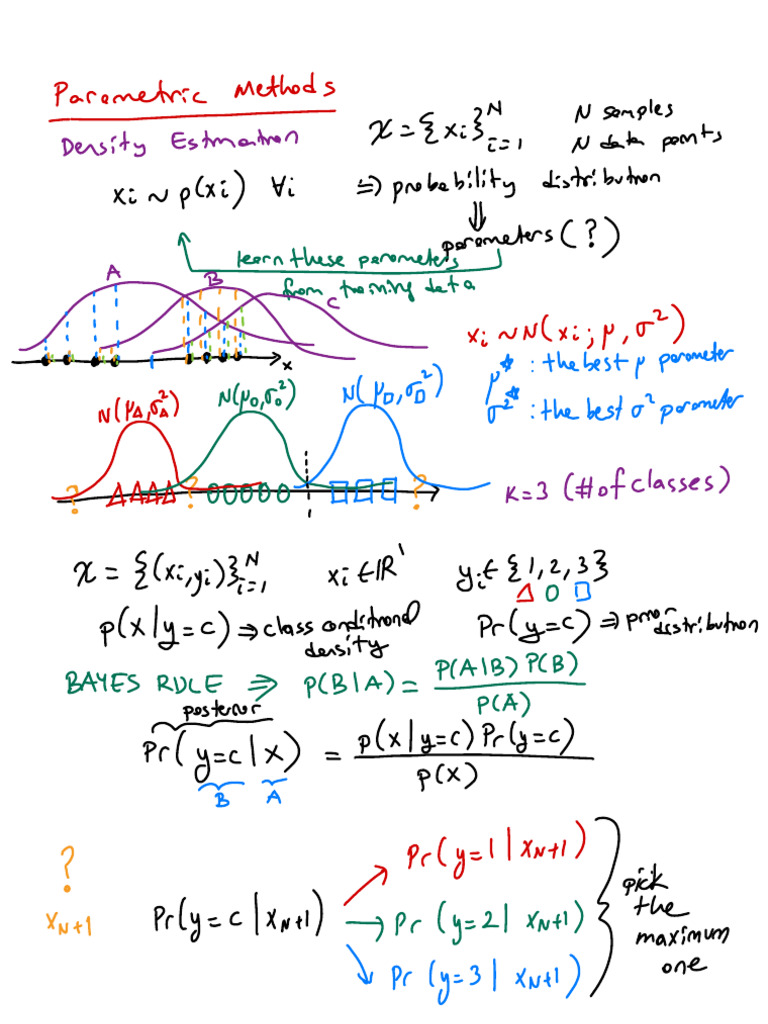 Parametric Methods
Density Estimation
X = {xi}ᴺi=1
N samples
N data points
xi ~ p(xi) ∀i ⇒ probability distribution
⇓
parameters (?)
learn these parameters
from training data
A B C
x
xi ~ N(xi; μ, σ²)
μ* : the best μ parameter
σ²* : the best σ² parameter
N(μ△, σ²△) N(μO, σ²O) N(μ□, σ²□)
? ? ?
K=3 (# of classes)
X = {(xi, yi)}ᴺi=1 xi ∈ ℝ¹ yi ∈ {1, 2, 3}
△ O □
p(x|y=c) ⇒ class conditional density
Pr(y=c) ⇒ prior distribution
BAYES RULE ⇒ P(B|A) = P(A|B) P(B) / P(A)
posterior
Pr(y=c|x) = p(x|y=c) Pr(y=c) / p(x)
B A
?
xN+1
Pr(y=c|xN+1)
Pr(y=1|xN+1)
Pr(y=2|xN+1)
Pr(y=3|xN+1)
pick
the
maximum
one